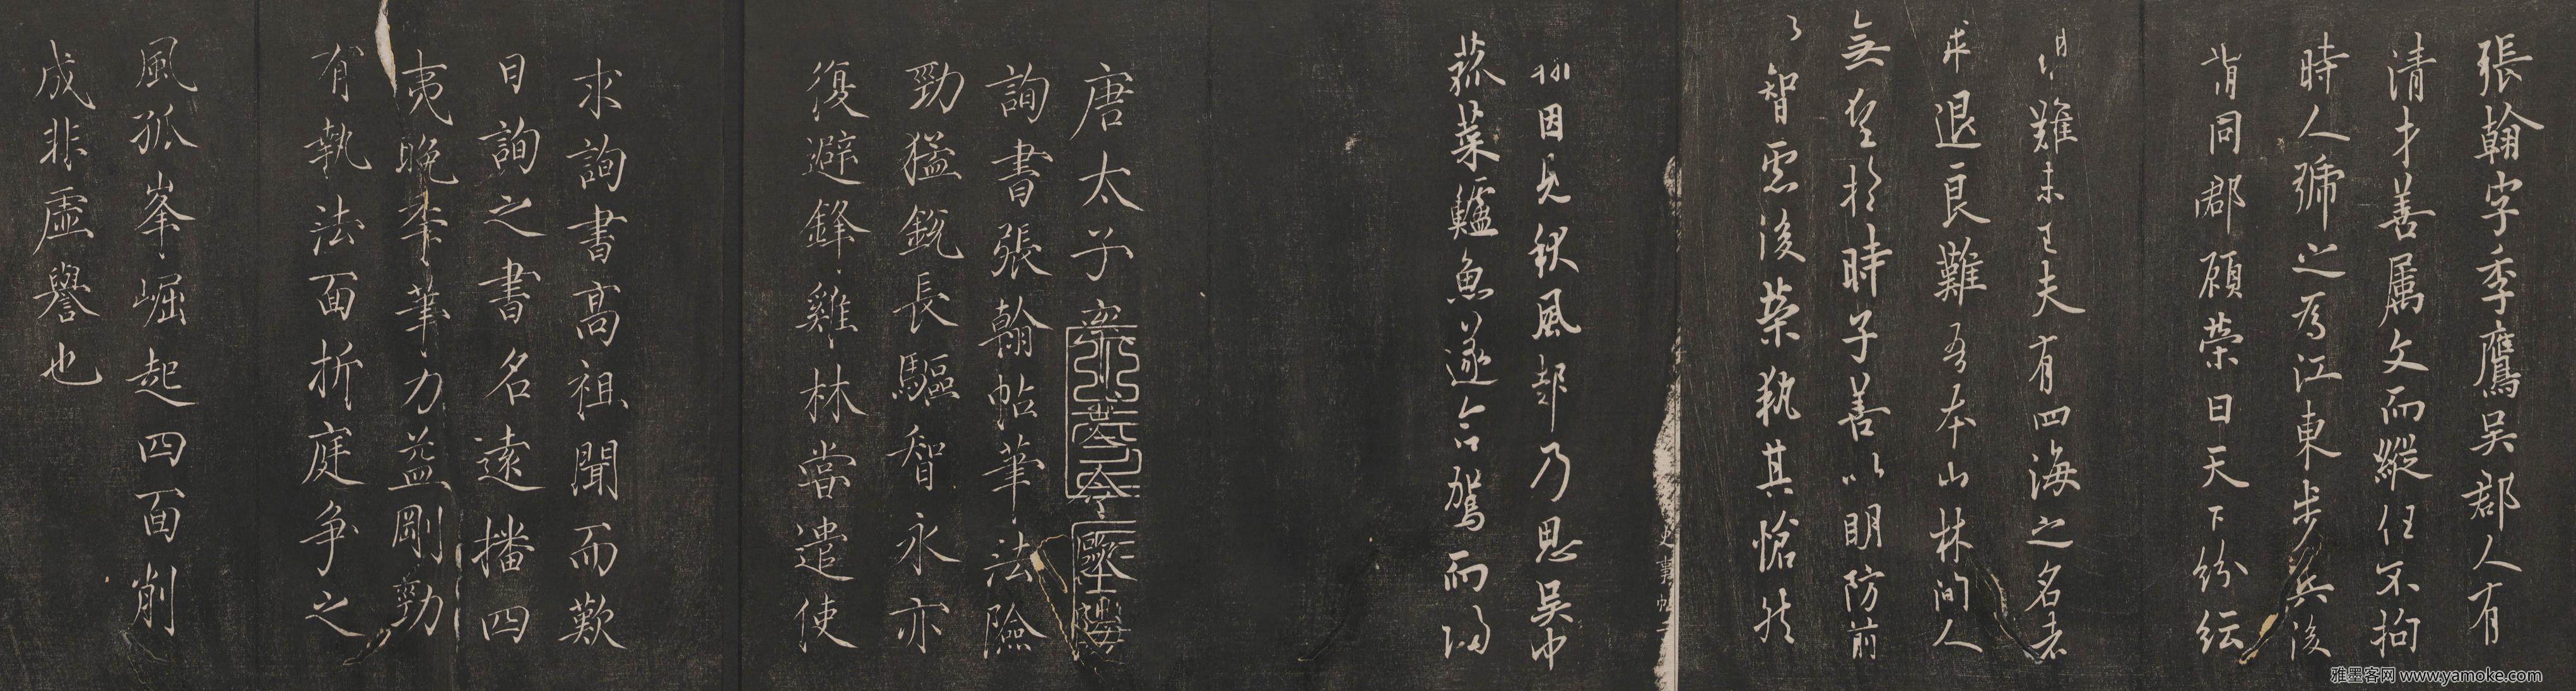 張翰字季鷹吳郡人有
清才善属文而縱任不拘
時人號之為江東步兵後
同郡顧榮曰天下紛紜
難未已夫有四海之名者
求退良難吾本山林間人
無望於時子善以明防前
智慮後榮執其愴然
因見秋風起乃思吳中
菰菜鱸魚遂命駕而歸
史事帖
唐太子率更令歐陽
詢書張翰帖筆法險
勁猛銳長驅智永亦
復避鋒雞林當遣使
求詢書高祖聞而歎
曰詢之書名遠播四
夷晚年筆力益剛勁
有執法面折庭爭之
風孤峯崛起四面削
成非虛譽也
雅墨客网 www.yamoke.com